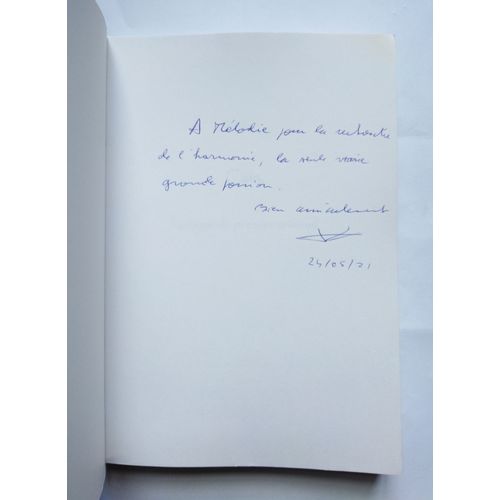 A Mélodie pour la recherche
de l'harmonie, la seule vraie
grande passion.
Bien amicalement
24/05/21